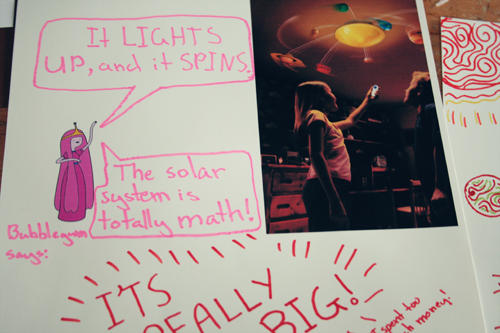 It LIGHTS
UP, and it SPINS.
The solar
system is
totally math!
Bubblegum
says:
IT'S
REALLY
BIG!
spent too
much money!